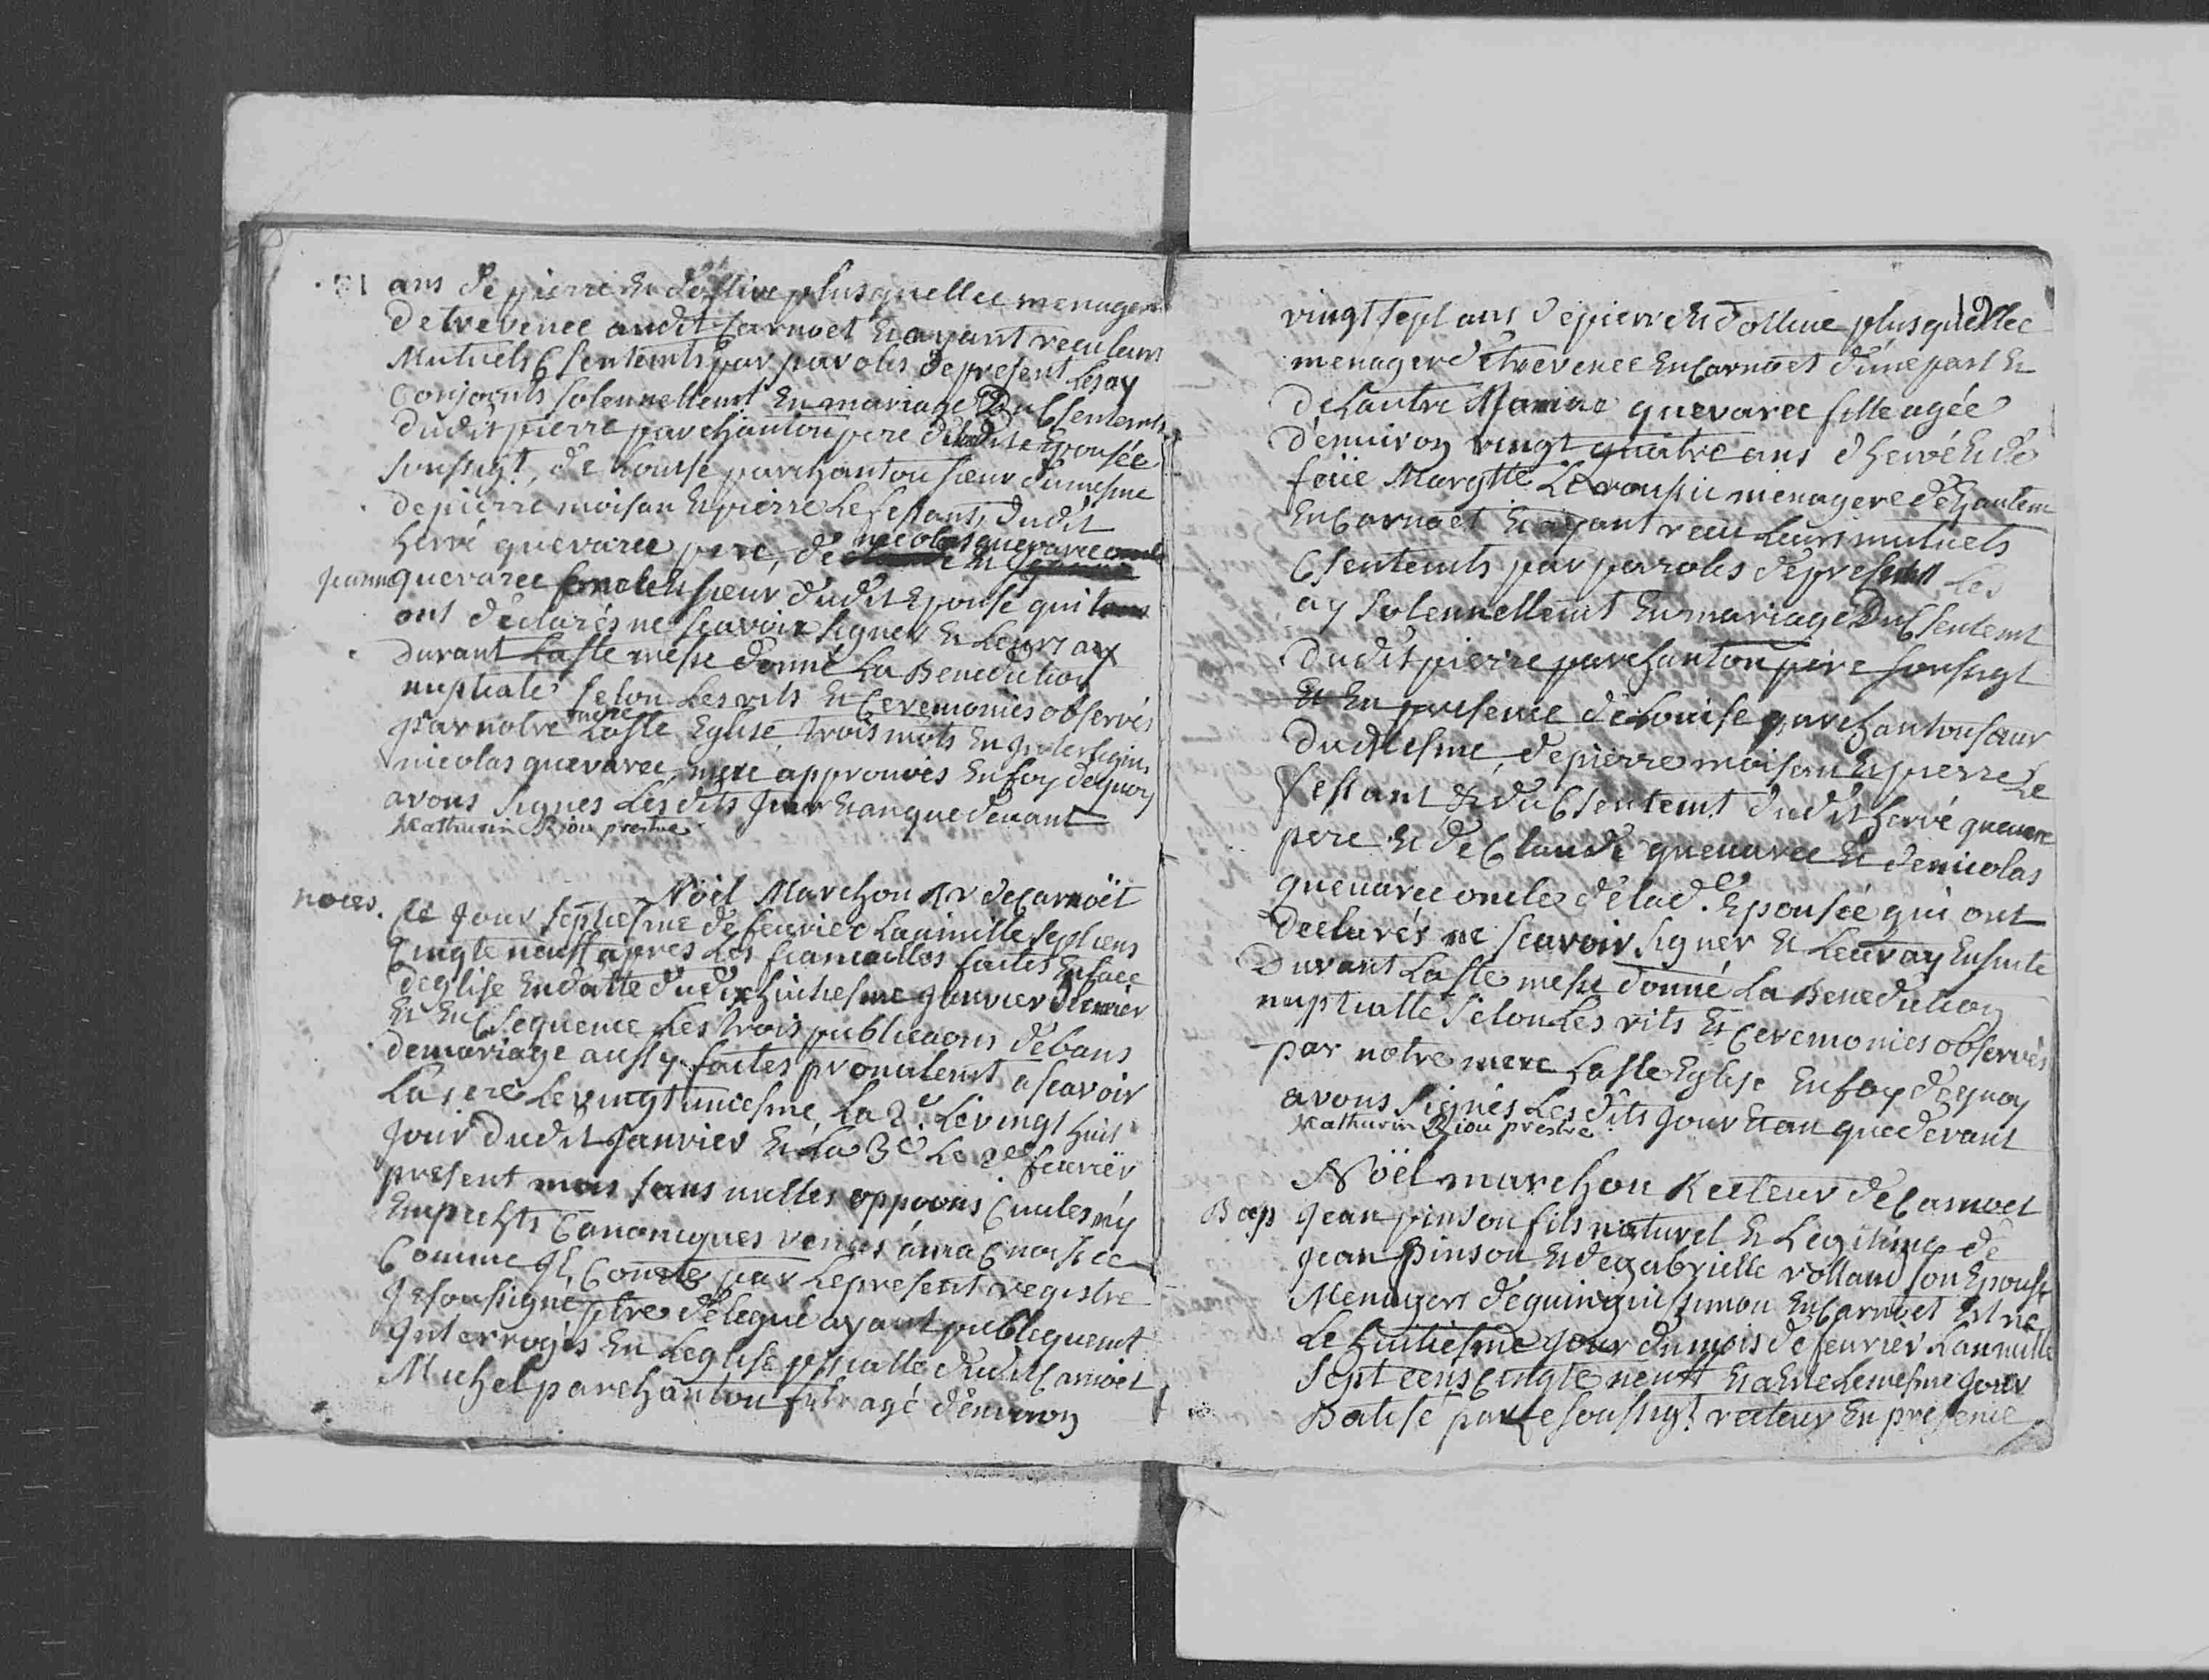 ans de pierre et d'ollive plusquellec menagers
de trevenec audit Carnoet Et ayant receu leurs
Mutuels Csentemts par parolles de present Les ay
Conjoints solennellemt En mariage Du Csentemts
dudit pierre parchantou pere de ladite Epousée
soussigt, de Louise parchantou sœur du mesme
de pierre moisan Et pierre Le fessant, dudit
hervé quevarec pere, de nicolas quevarec oncle
Jeanne quevarec sœur dudit Epousé qui
ont declarés ne scavoir signer Et Leurs ay
Durant La ste messe donné La Benediction
nuptiale selon Les rits Et Ceremonies observés
par notre mere La ste Eglise, trois mots En Interligne,
nicolas quevarec, mere approuvés En foy de quoy
avons signés Lesdits Jour Et an que devant
Mathurin Riou prestre
Nöel Marchou Rr de Carnoët
noces. Ce Jour septiesme de feuvrier L'an mille sept cens
Cinqte neuff apres Les fiancailles faites En face
d'eglise En datte du dix huitiesme Janvier dernier
Et En Csequence Les trois publicaons de bans
de mariage aussy faites pronalemt a scavoir
La 1ere Le vingt uniesme, La 2e. Le vingt huit
Jour dudit Janvier Et La 3e Le 2e feuvrier
present mois sans nulles oppoons Cviles n'y
Empechts Canoniques venus a ma Cnoissce
Comme Il Conste par Le present registre
Je soussigné ptre delegué ayant publiquemt
Interrogés En L'eglise pssialle dudit Carnoët
Michel parchantou fils agé d'environ
19
vingt sept ans de pierre Et d'ollive plusquellec
menagers de trevenec En Carnoet d'une part Et
De L'autre Marine quevarec fille agée
d'environ vingt quatre ans d'hervé Et de
feüe Margtte Le roussic menagers de
En Carnoët Et ayant receu Leurs mutuels
Csentemts par parroles de present Les
ay solennellemt En mariage Du Csentemt
Dudit pierre parchantou pere soussigt
Et En presence de Louise parchantou sœur
Dudit mesme, de pierre moisan Et pierre Le
fessant Et du Csentemt dudit hervé quevarec
pere Et de Claude quevarec Et de nicolas
quevarec oncles de lade. Epousée qui ont
declarés ne scavoir signer Et Leur ay Ensuite
Durant La ste messe donné La Benediction
nuptialle selon Les rits Et Ceremonies observés
par notre mere La ste Eglise En foy de quoy
avons signés Les dits Jour Et an que devant
Mathurin Riou prestre
Nöel marchou Recteur de Carnoet
Bap Jean pinson fils naturel Et Legitime de
Jean Pinson Et de gabrielle rolland son Epouse
Menagers de quinquis simon En Carnoet Est né
Le huitiesme Jour du mois de feuvrier L'an mille
sept cens Cinqte neuff Et a Ete Le mesme Jour
Batisé par Le soussigt recteur En presence